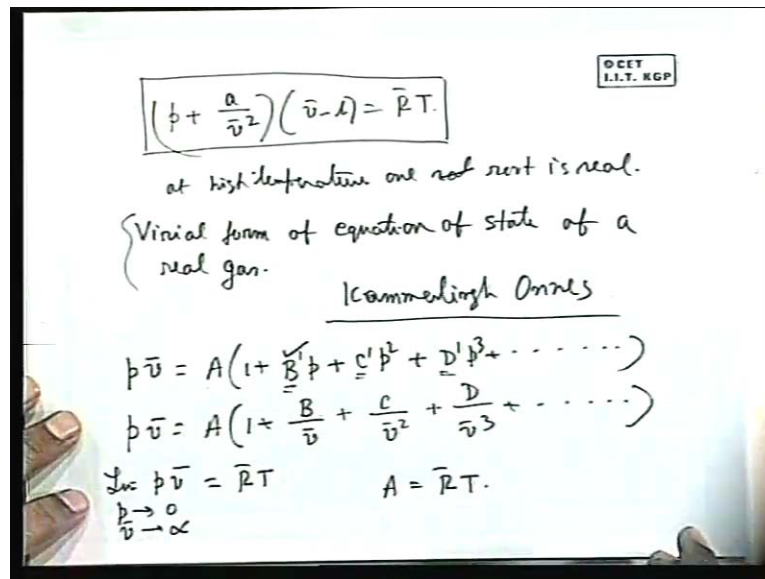 © CET
I.I.T. KGP
(p + a/v̄²)(v̄ - b) = R̄T.
at high temperature one root is real.
Virial form of equation of state of a
real gas.
Kammerlingh Onnes
pv̄ = A(1 + B'p + C'p² + D'p³ + .......)
pv̄ = A(1 + B/v̄ + C/v̄² + D/v̄³ + ......)
Lim pv̄ = R̄T A = R̄T.
p → 0
v̄ → ∝